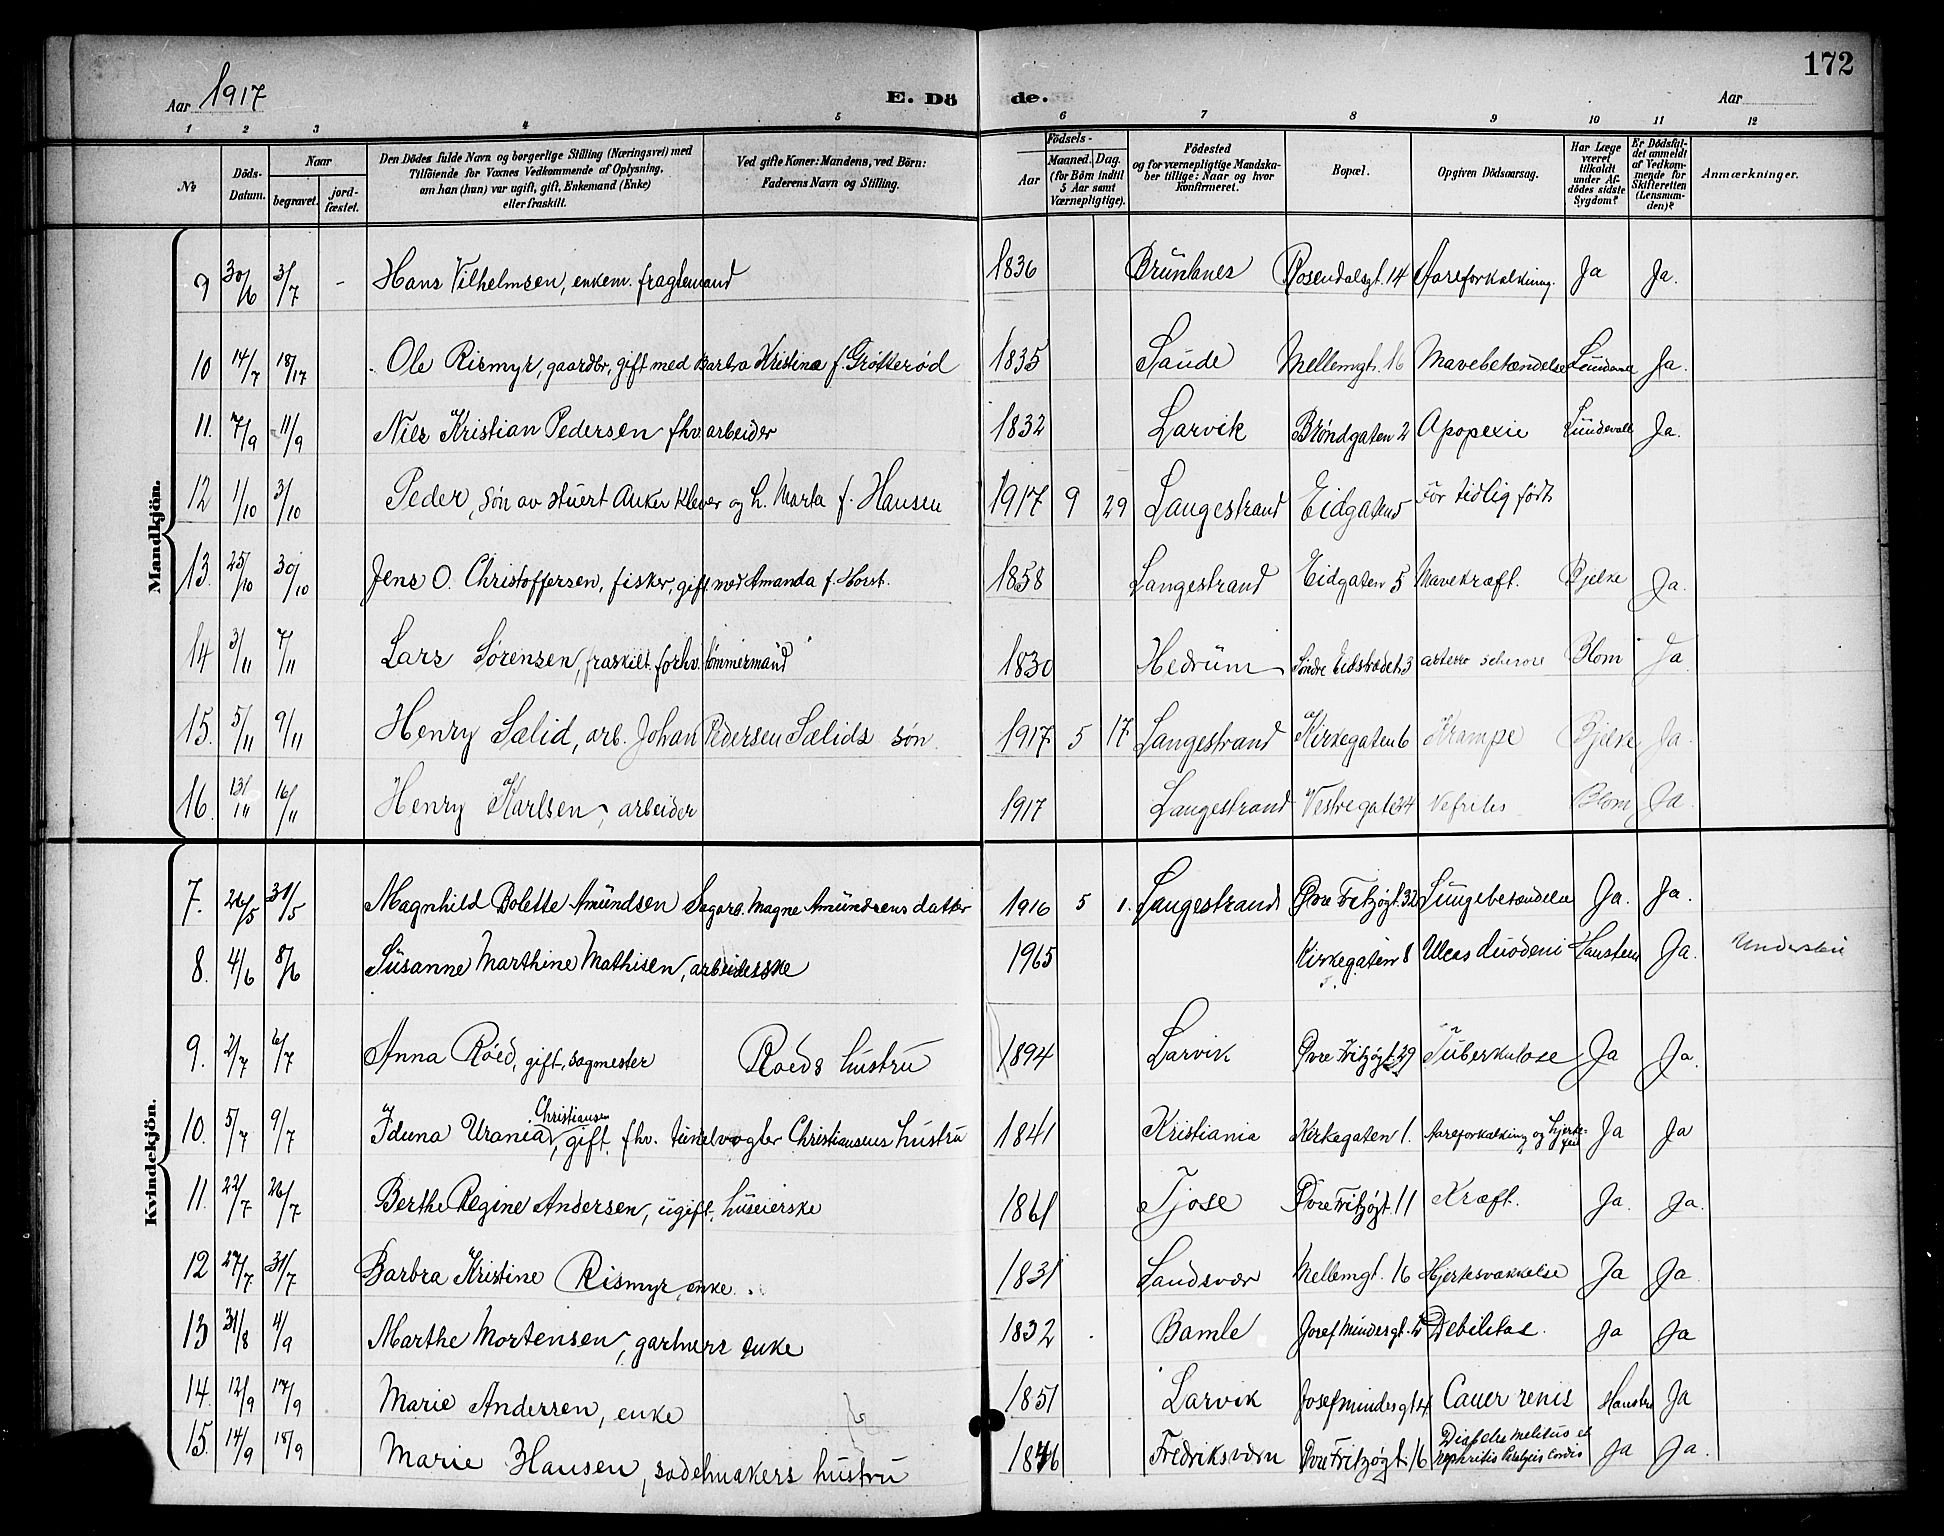 172
Aar 1917 E. Dö de. Aar
1 2 3 4 5 6 7 8 9 10 11 12
№ Döds-Datum. Naar begravet. jordfæstet. Den Dödes fulde Navn og borgerlige Stilling (Næringsvei) med Tilföiende for Voxnes Vedkommende af Oplysning, om han (hun) var ugift, gift, Enkemand (Enke) eller fraskilt. Ved gifte Koner: Mandens, ved Börn: Faderens Navn og Stilling. Födsels- Aar Maaned. Dag. (for Börn indtil 5 Aar samt Værnepligtige). Födested og for værnepligtige Mandskaber tillige: Naar og hvor Konfirmeret. Bopæl. Opgiven Dödsaarsag. Har Læge været tilkaldt under Afdödes sidste Sygdom? Er Dödsfaldet anmeldt af Vedkommende for Skifteretten (Lensmanden)? Anmærkninger.
Mandkjön.
9 30/6 3/7 - Hans Vilhelmsen, enkem. 1836 Rosendalsgt. 14 Aareforkalkning. Ja Ja.
10 14/7 18/17 Ole Rismyr, gaardbr, gift med Barbra Kristine f. Grøtterød 1835 Saude Mellemgt. 16 Mavebetændelse Ja.
11. 7/9 11/9 Nils Kristian Pedersen fhv. arbeider 1832 Larvik Brøndgaten 2 Apopexie Ja.
12 1/10 3/10 Peder, søn av stuert Anker Klever og h. Marta f. Hansen 1917 9 29 Langestrand Eidgaten 5 For tidlig født
13. 25/10 30/10 Jens O. Christoffersen, fisker, gift med Amanda f. Horst. 1858 Langestrand Eidgaten 5 Mavekræft. Bjelke Ja.
14 3/11 7/11 Lars Sørensen, fraskilt. forhv. tømmermand 1830 Hedrum Søndre Blom Ja
15. 5/11 9/11 Henry Sælid, arb. Johan Pedersen Sælids søn. 1917 5 17 Langestrand Kirkegaten 6 Krampe Bjelke Ja
16. 13/11 16/11 Henry Karlsen, arbeider 1917 Langestrand Vestregate 24 Nefrites Blom Ja
Kvindekjön.
7. 31/5 Magnhild Bolette Amundsen Sagarb. Magne Amundsens datter 1916 5 1. Langestrand Øvre Fritzøgt. 32 Lungebetændelse Ja. Ja.
8. 4/6 8/6 Susanne Marthine Mathisen, arbeiderske 1965 Kirkegaten 8 Ulcus duodeni Ja.
9. 2/7 6/7 Anna Røed, gift, sagmester Roeds hustru 1894 Larvik Øvre Fritzøgt. 29 Tuberkulose Ja Ja.
10. 5/7 9/7 Iduna Urania Christiansen, gift. fhv. Christiansens hustru 1841 Kristiania Kirkegaten 1. Aareforkalkning og hjertefeil Ja Ja
11. 22/7 26/7 Berthe Regine Andersen, ugift, huseierske 1861 Tjose Øvre Fritzøgt. 11 Kræft. Ja. Ja.
12 27/7 31/7 Barbra Kristine Rismyr, enke. 1831 Sandsvær Mellemgt. 16 Hjertesvækkelse Ja Ja
13 31/8 4/9 Marthe Mortensen, gartners enke 1832 Bamle Josef Mindesgt. Debilitas. Ja Ja
14. 12/9 17/9 Marie Andersen, enke 1851 Larvik Josefmindesgt 4 Cancer renis Ja
15. 14/9 18/9 Marie Hansen, sadelmakers hustru 1846 Fredriksværn Øvre Fritzøgt. 16 Diabetes melitus et nephritis Paralysis cordis Ja Ja.